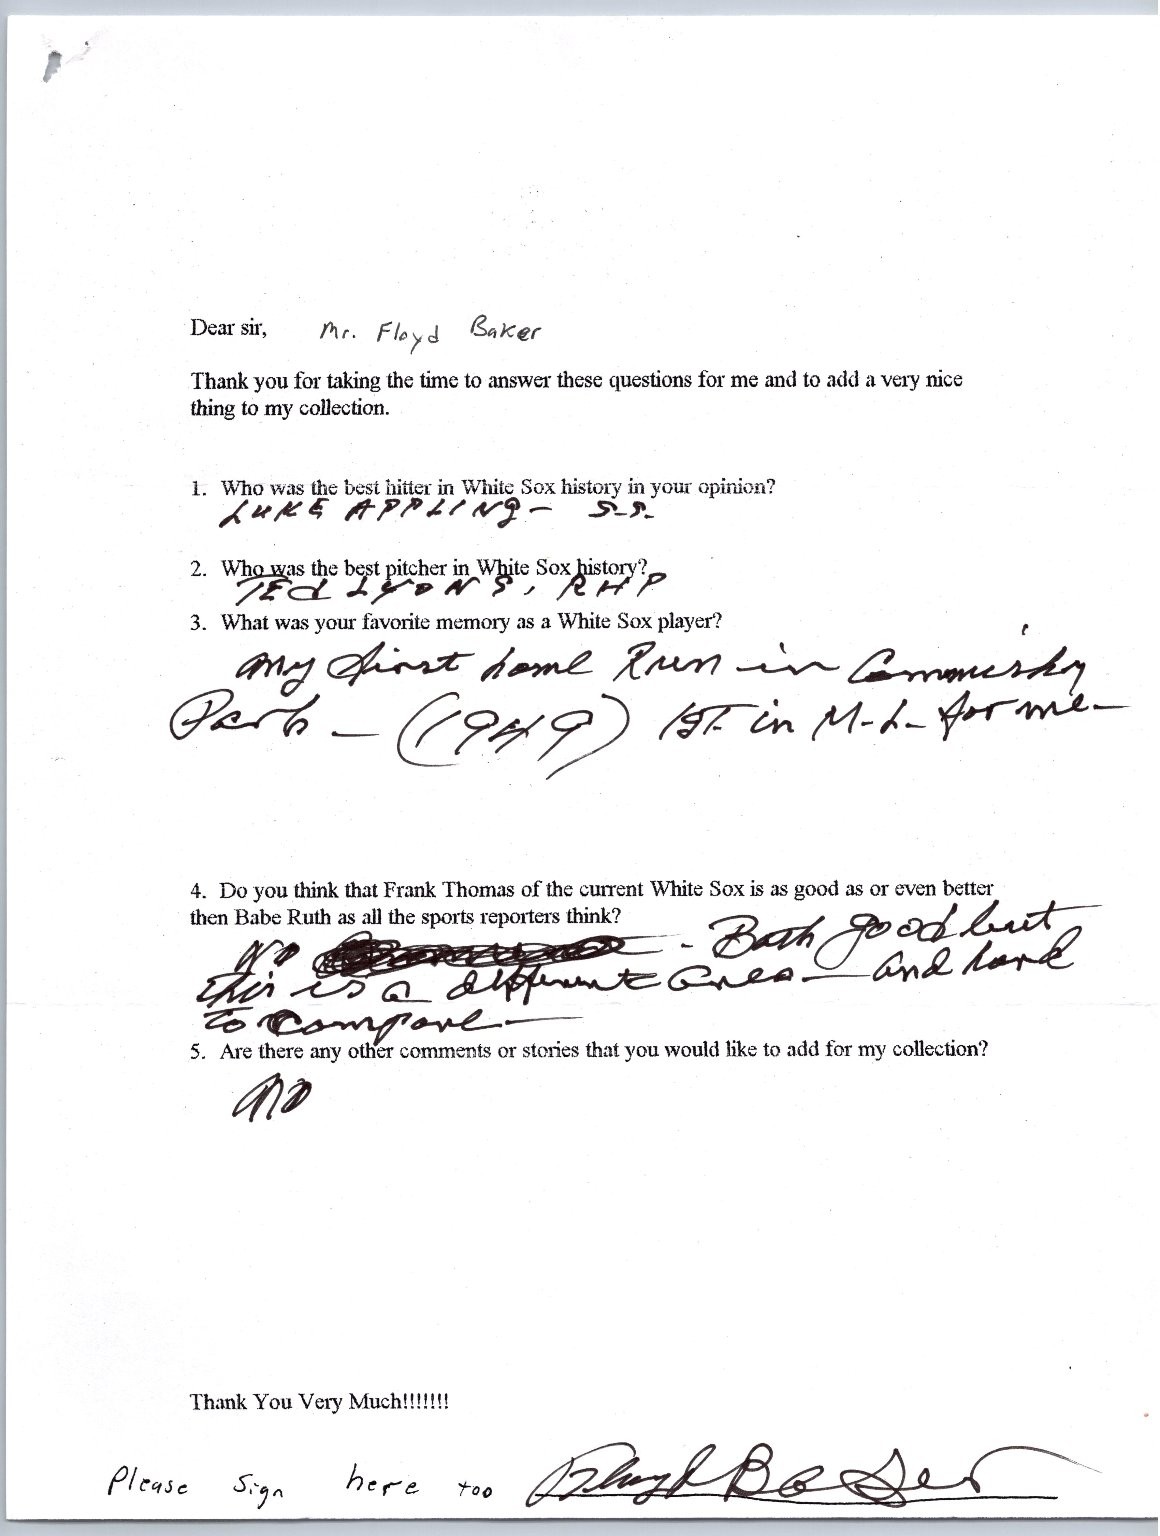 Dear sir, Mr. Floyd Baker
Thank you for taking the time to answer these questions for me and to add a very nice
thing to my collection.
1. Who was the best hitter in White Sox history in your opinion?
LUKE APPLING - S.S.
2. Who was the best pitcher in White Sox history?
TEd LYONS, RHP
3. What was your favorite memory as a White Sox player?
My first home Run in Commisky
Park - (1949) 1ST. in M-L- for me-
4. Do you think that Frank Thomas of the current White Sox is as good as or even better
then Babe Ruth as all the sports reporters think?
NO - Both good but
this is a different area - and hard
to compare -
5. Are there any other comments or stories that you would like to add for my collection?
NO
Thank You Very Much!!!!!!!
Please sign here too Floyd Baker